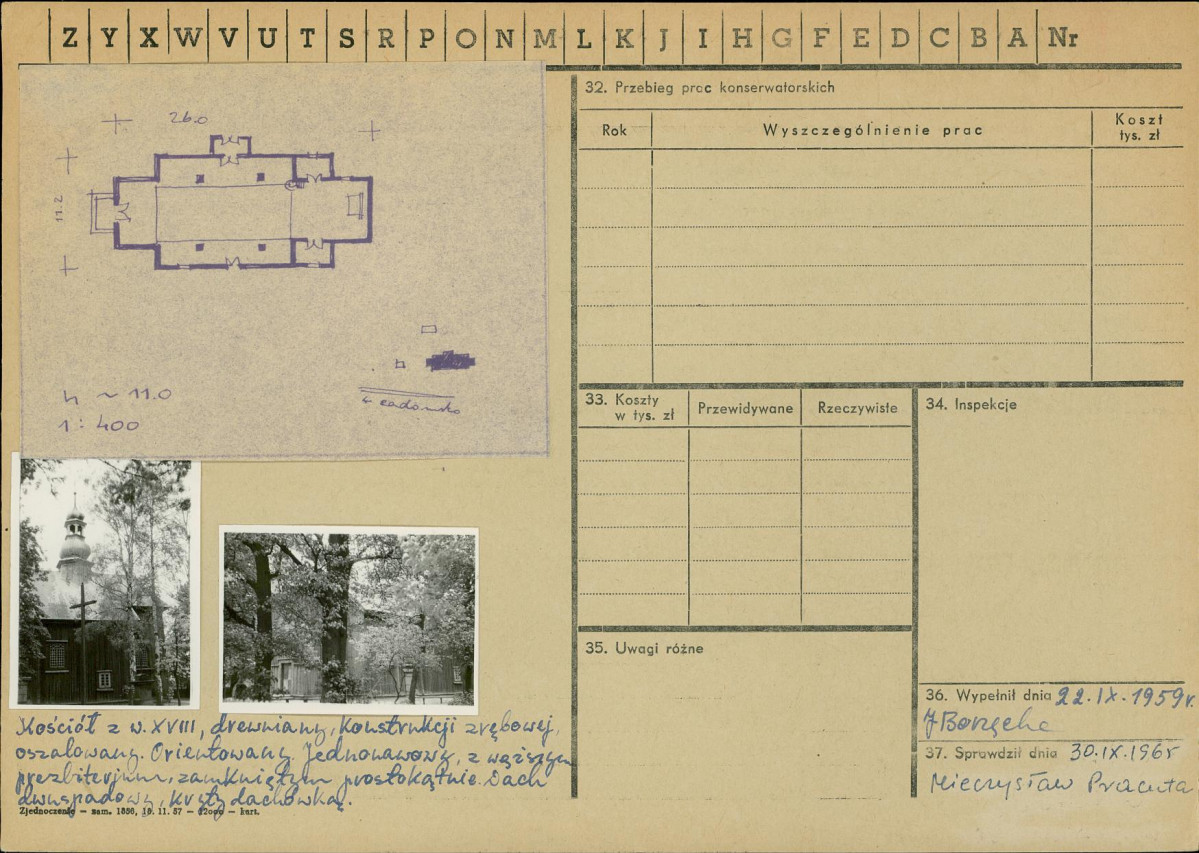 Z Y X W V U T S R P O N M L K J I H G F E D C B A Nr
26.0
11.2
h ~ 11.0
1 : 400
Kościół z w. XVIII, drewniany, konstrukcji zrębowej,
oszalowany. Orientowany. Jednonawowy, z węższym
prezbiterjum, zamkniętym prostokątnie. Dach
dwuspadowy, kryty dachówką.
Zjednoczenie — zam. 1856, 18. 11. 57 — 12000 — kart.
32. Przebieg prac konserwatorskich
Rok
Wyszczególnienie prac
Koszt
tys. zł
33. Koszty
w tys. zł
Przewidywane
Rzeczywiste
34. Inspekcje
35. Uwagi różne
36. Wypełnił dnia 22.IX.1959r.
37. Sprawdził dnia 30.IX.1965
Mieczysław